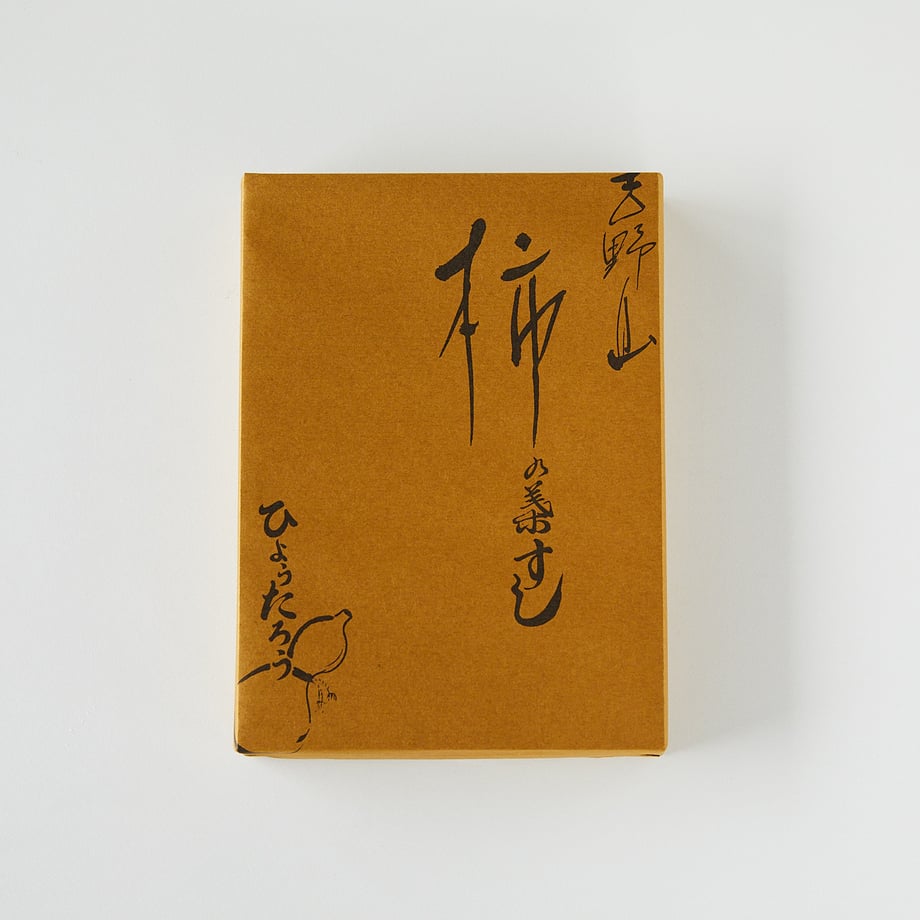 吉野山
柿の葉すし
ひょうたろう